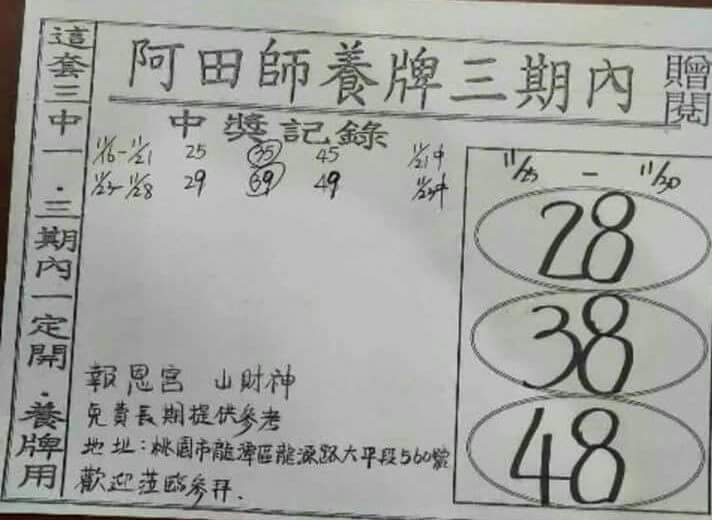 阿田師養牌三期內
贈閱
這套三中一．三期內一定開．養牌用
中獎記錄
11/16-11/21 25 35 45 11/21中
11/23-11/28 29 39 49 11/23中
11/25 - 11/30
28
38
48
報恩宮 山財神
免費長期提供參考
地址：桃園市龍潭區龍源路大平段560號
歡迎蒞臨參拜.